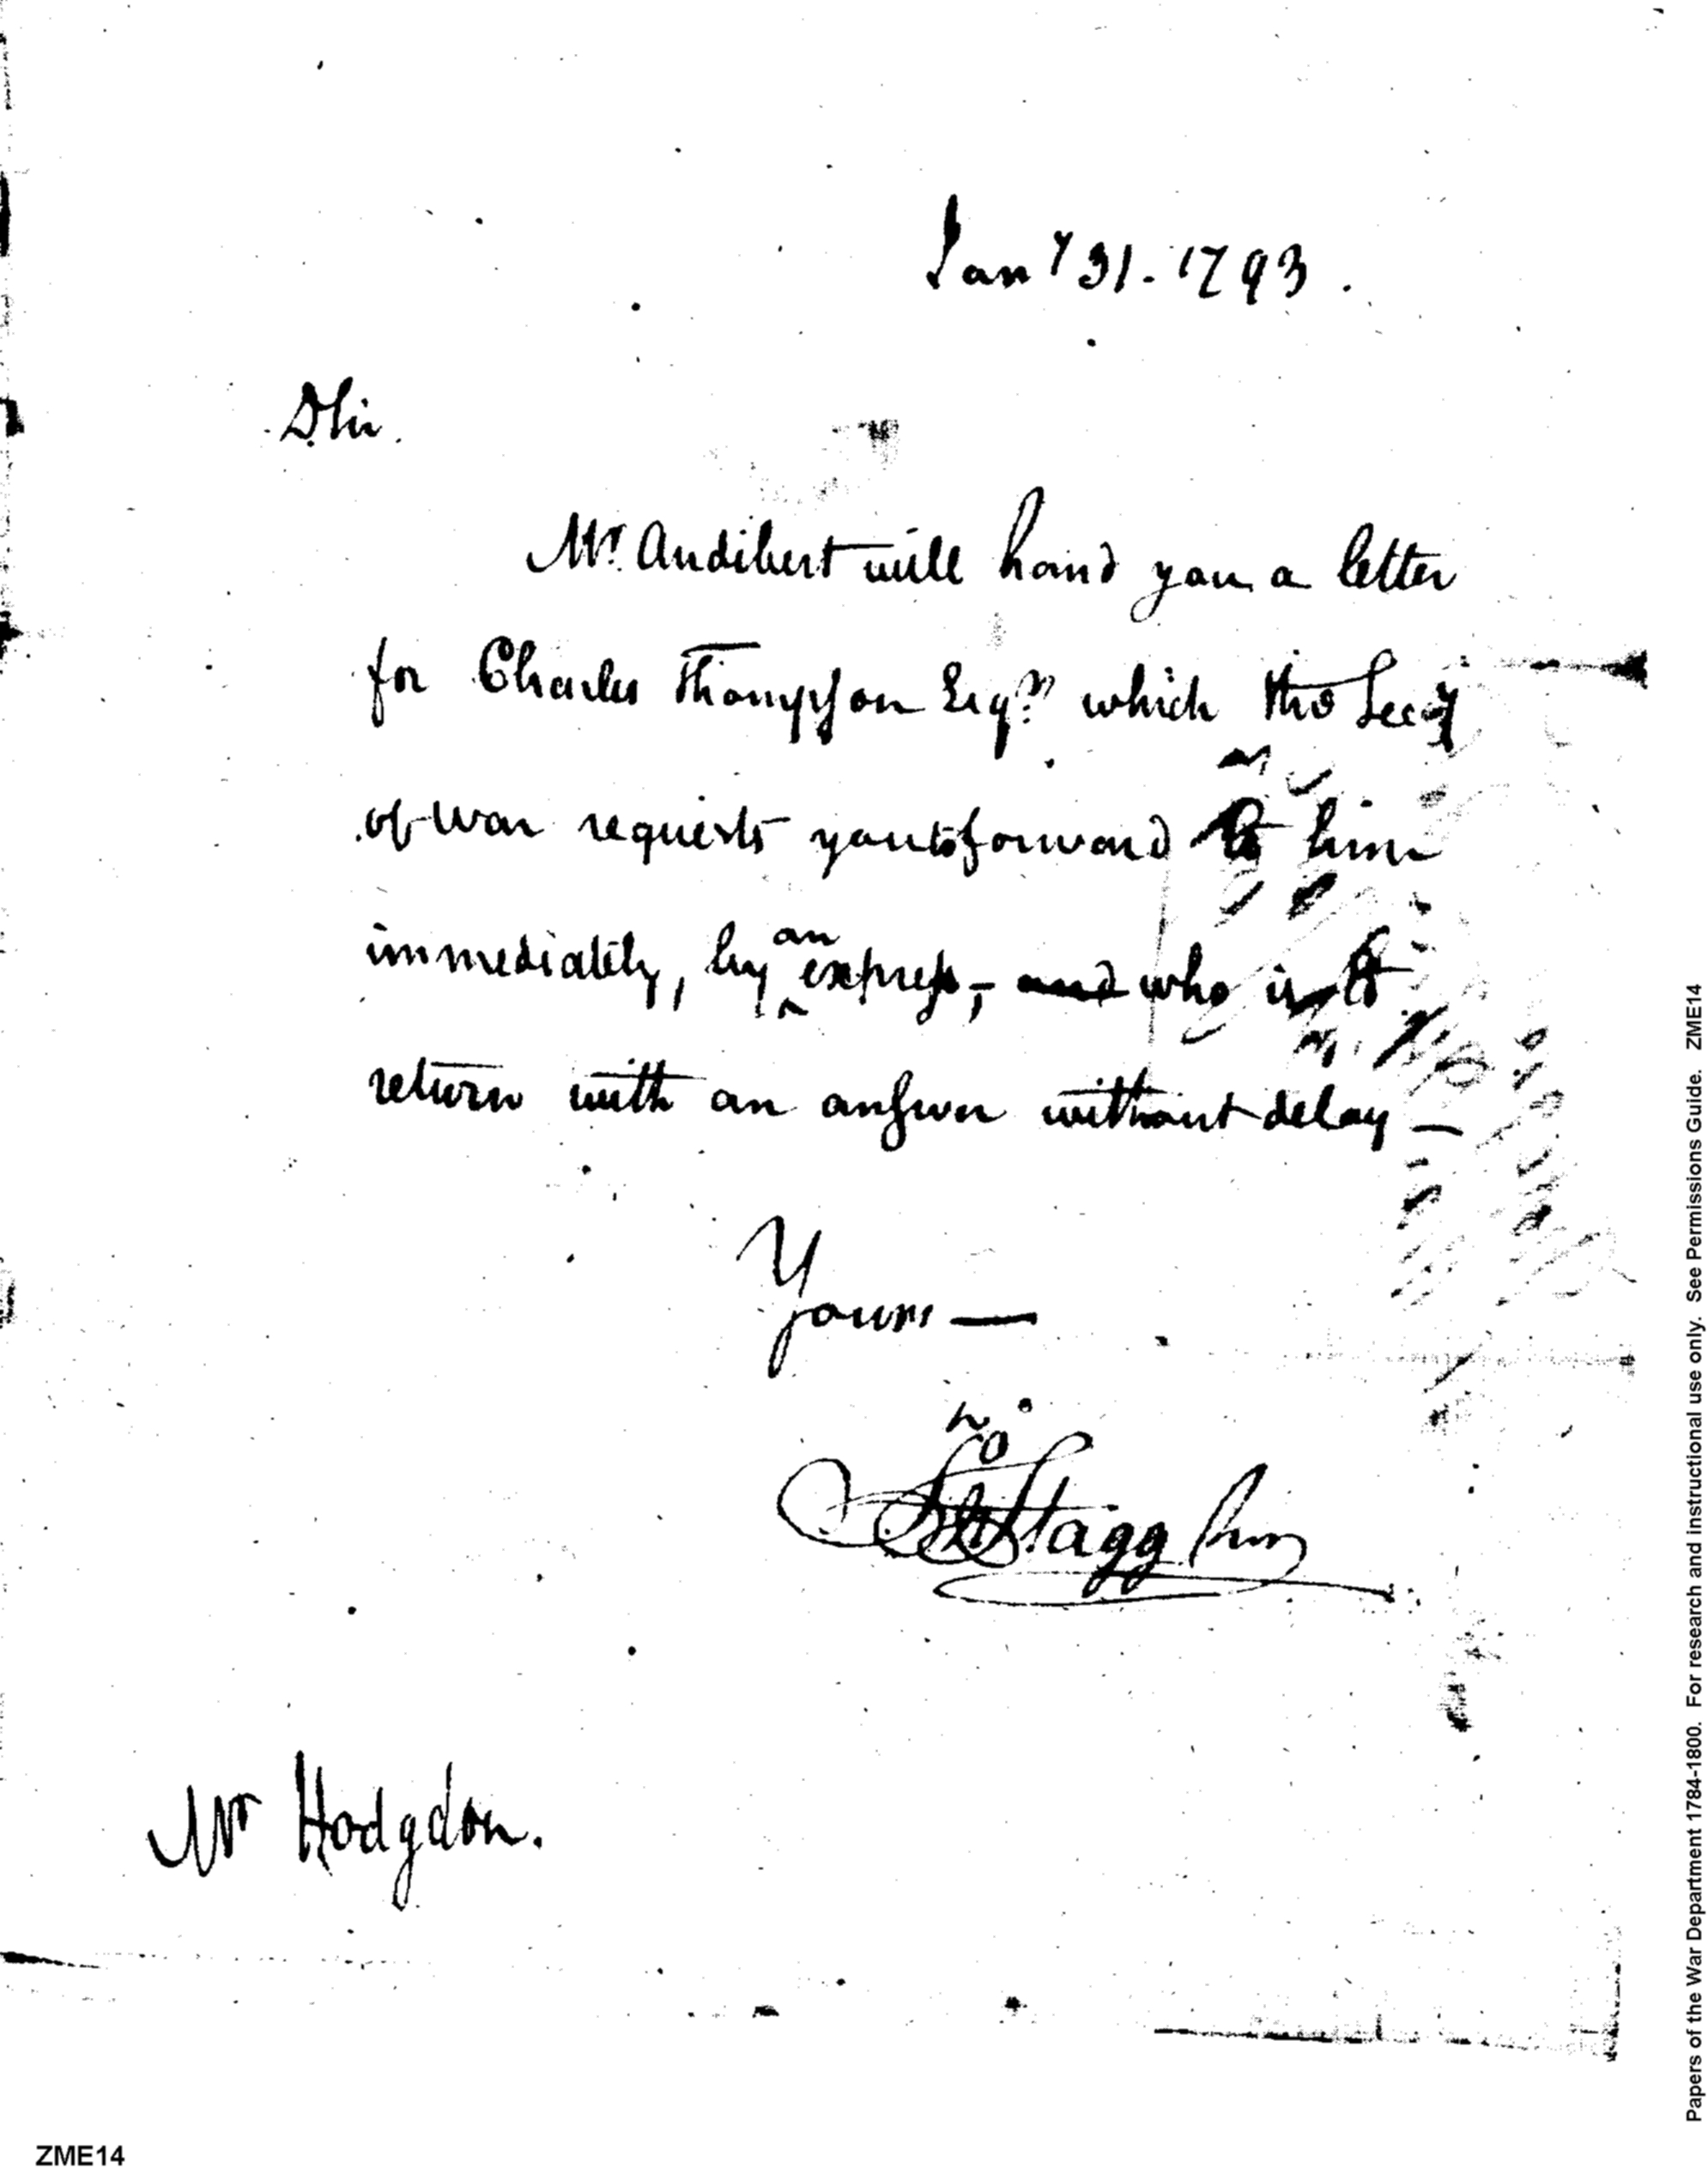 Jany 31. 1793.
D Sir.
Mr. Audibert will hand you a letter
for Charles Thompson Esqr. which the Secy
of War requests you to forward to him
immediately, by an express, and who is to
return with an answer without delay —
Yours —
Jno Stagg Junr
Mr Hodgdon.
ZME14
Papers of the War Department 1784-1800. For research and instructional use only. See Permissions Guide. ZME14